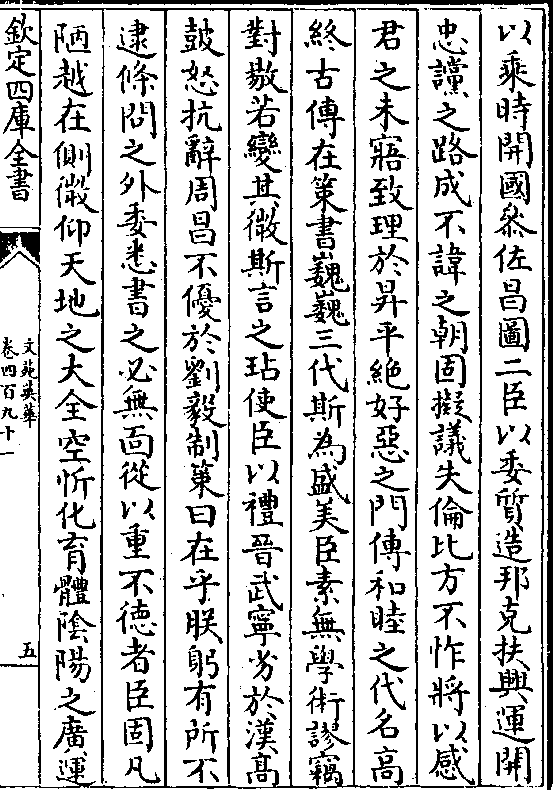 以乘時開國叅佐昌圖二臣以委質造邦克扶興運開
忠讜之路成不諱之朝固擬議失倫比方不怍將以感
君之未寤致理於昇平絶好惡之門傳和睦之代名高
終古傳在策書巍巍三代斯為盛美臣素無學術謬竊
對敭若變其微斯言之玷使臣以禮晉武寧劣於漢髙
鼓怒抗辭周昌不優於劉毅制策曰在乎朕躬有所不
逮條問之外委悉書之必無面從以重不徳者臣固凡
陋越在側微仰天地之大全空忻化育體陰陽之廣運
欽定四庫全書
文苑英華
卷四百九十一
五